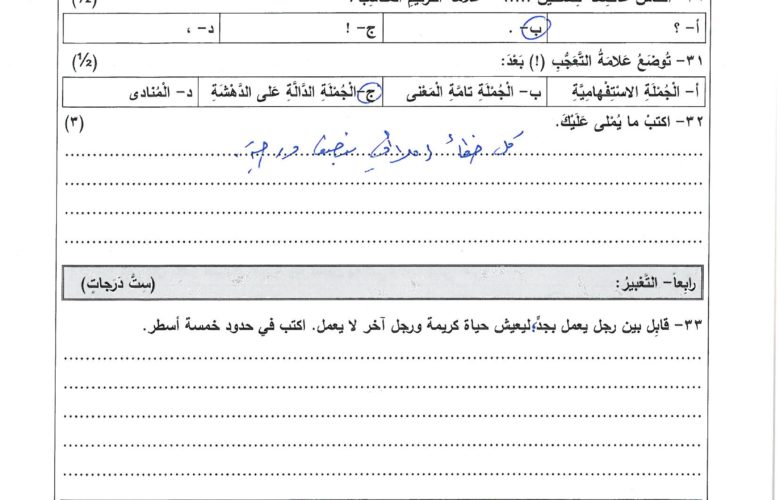 أ- ؟ ب- . ج- ! د- ،
٣١- تُوضَعُ عَلامَةُ التَّعَجُّبِ (!) بَعْدَ: (½)
أ- الْجُمْلَةِ الاسْتِفْهامِيَّةِ ب- الْجُمْلَةِ تامَّةِ الْمَعْنى ج- الْجُمْلَةِ الدّالَّةِ عَلى الدَّهْشَةِ د- الْمُنادى
٣٢- اكتبْ ما يُمْلى عَلَيْكَ. (٣)
كل خطأ إملائي بنصف درجة.
رابِعاً- التَّعْبيرُ: (ستُّ دَرَجاتٍ)
٣٣- قابِل بين رجل يعمل بجدٍّ؛ ليعيش حياة كريمة ورجل آخر لا يعمل. اكتب في حدود خمسة أسطر.